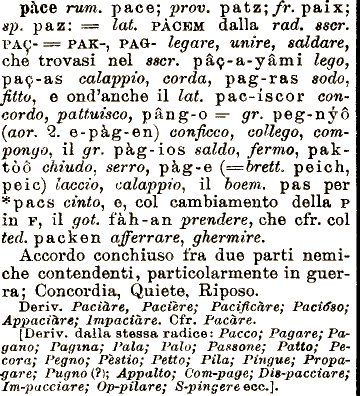 pàce rum. pace; prov. patz; fr. paix;
sp. paz: = lat. PÀCEM dalla rad. sscr.
PAÇ- = PAK-, PAG- legare, unire, saldare,
che trovasi nel sscr. pâç-a-yâmi lego,
paç-as calappio, corda, pag-ras sodo,
fitto, e ond'anche il lat. pac-iscor con-
cordo, pattuisco, pàng-o = gr. peg-nýô
(aor. 2. e-pàg-en) conficco, collego, com-
pongo, il gr. pàg-ios saldo, fermo, pak-
tòô chiudo, serro, pàg-e (= brett. peich,
peic) laccio, calappio, il boem. pas per
*pacs cinto, e, col cambiamento della P
in F, il got. fàh-an prendere, che cfr. col
ted. packen afferrare, ghermire.
Accordo conchiuso fra due parti nemi-
che contendenti, particolarmente in guer-
ra; Concordia, Quiete, Riposo.
Deriv. Paciàre, Pacière; Pacificàre; Pacióso;
Appaciàre; Impaciàre. Cfr. Pacàre.
[Deriv. dalla stessa radice: Pacco; Pagare; Pa-
gano; Pagina; Pala; Palo; Passone; Patto; Pe-
cora; Pegno; Pèstio; Petto; Pila; Pingue; Propa-
gare; Pugno (?); Appalto; Com-page; Dis-pacciare;
Im-pacciare; Op-pilare; S-pingere ecc.].